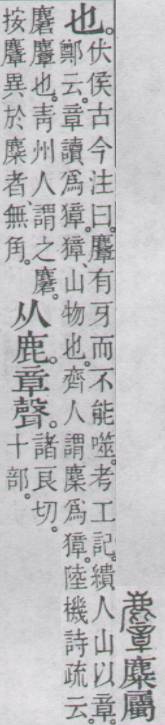 麞麋屬
也。
伏侯古今注曰。麞有牙而不能噬。考工記。繢人山以章。
鄭云。章讀爲獐。獐、山物也。齊人謂麋爲獐。陸機詩疏云。
麏麞也。靑州人謂之麏。
按麞異於麋者、無角。
从鹿。章聲。
諸良切。
十部。